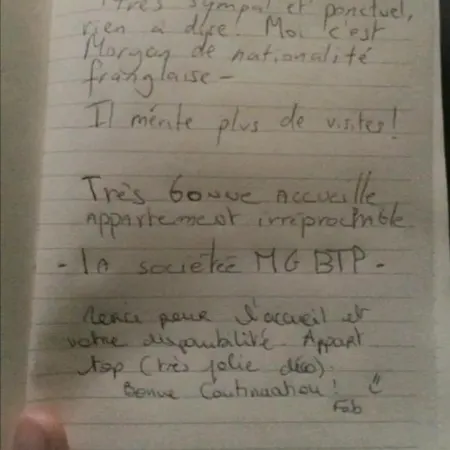 Très sympa! et ponctuel,
rien à dire. Moi c'est
Morgan de nationalité
franglaise -
Il mérite plus de visites!
Très bonne accueille
appartement irréprochable
- la sociétée MG BTP -
Merci pour l'accueil et
votre disponibilité Appart
top (très jolie déco).
Bonne Continuation !
Fab